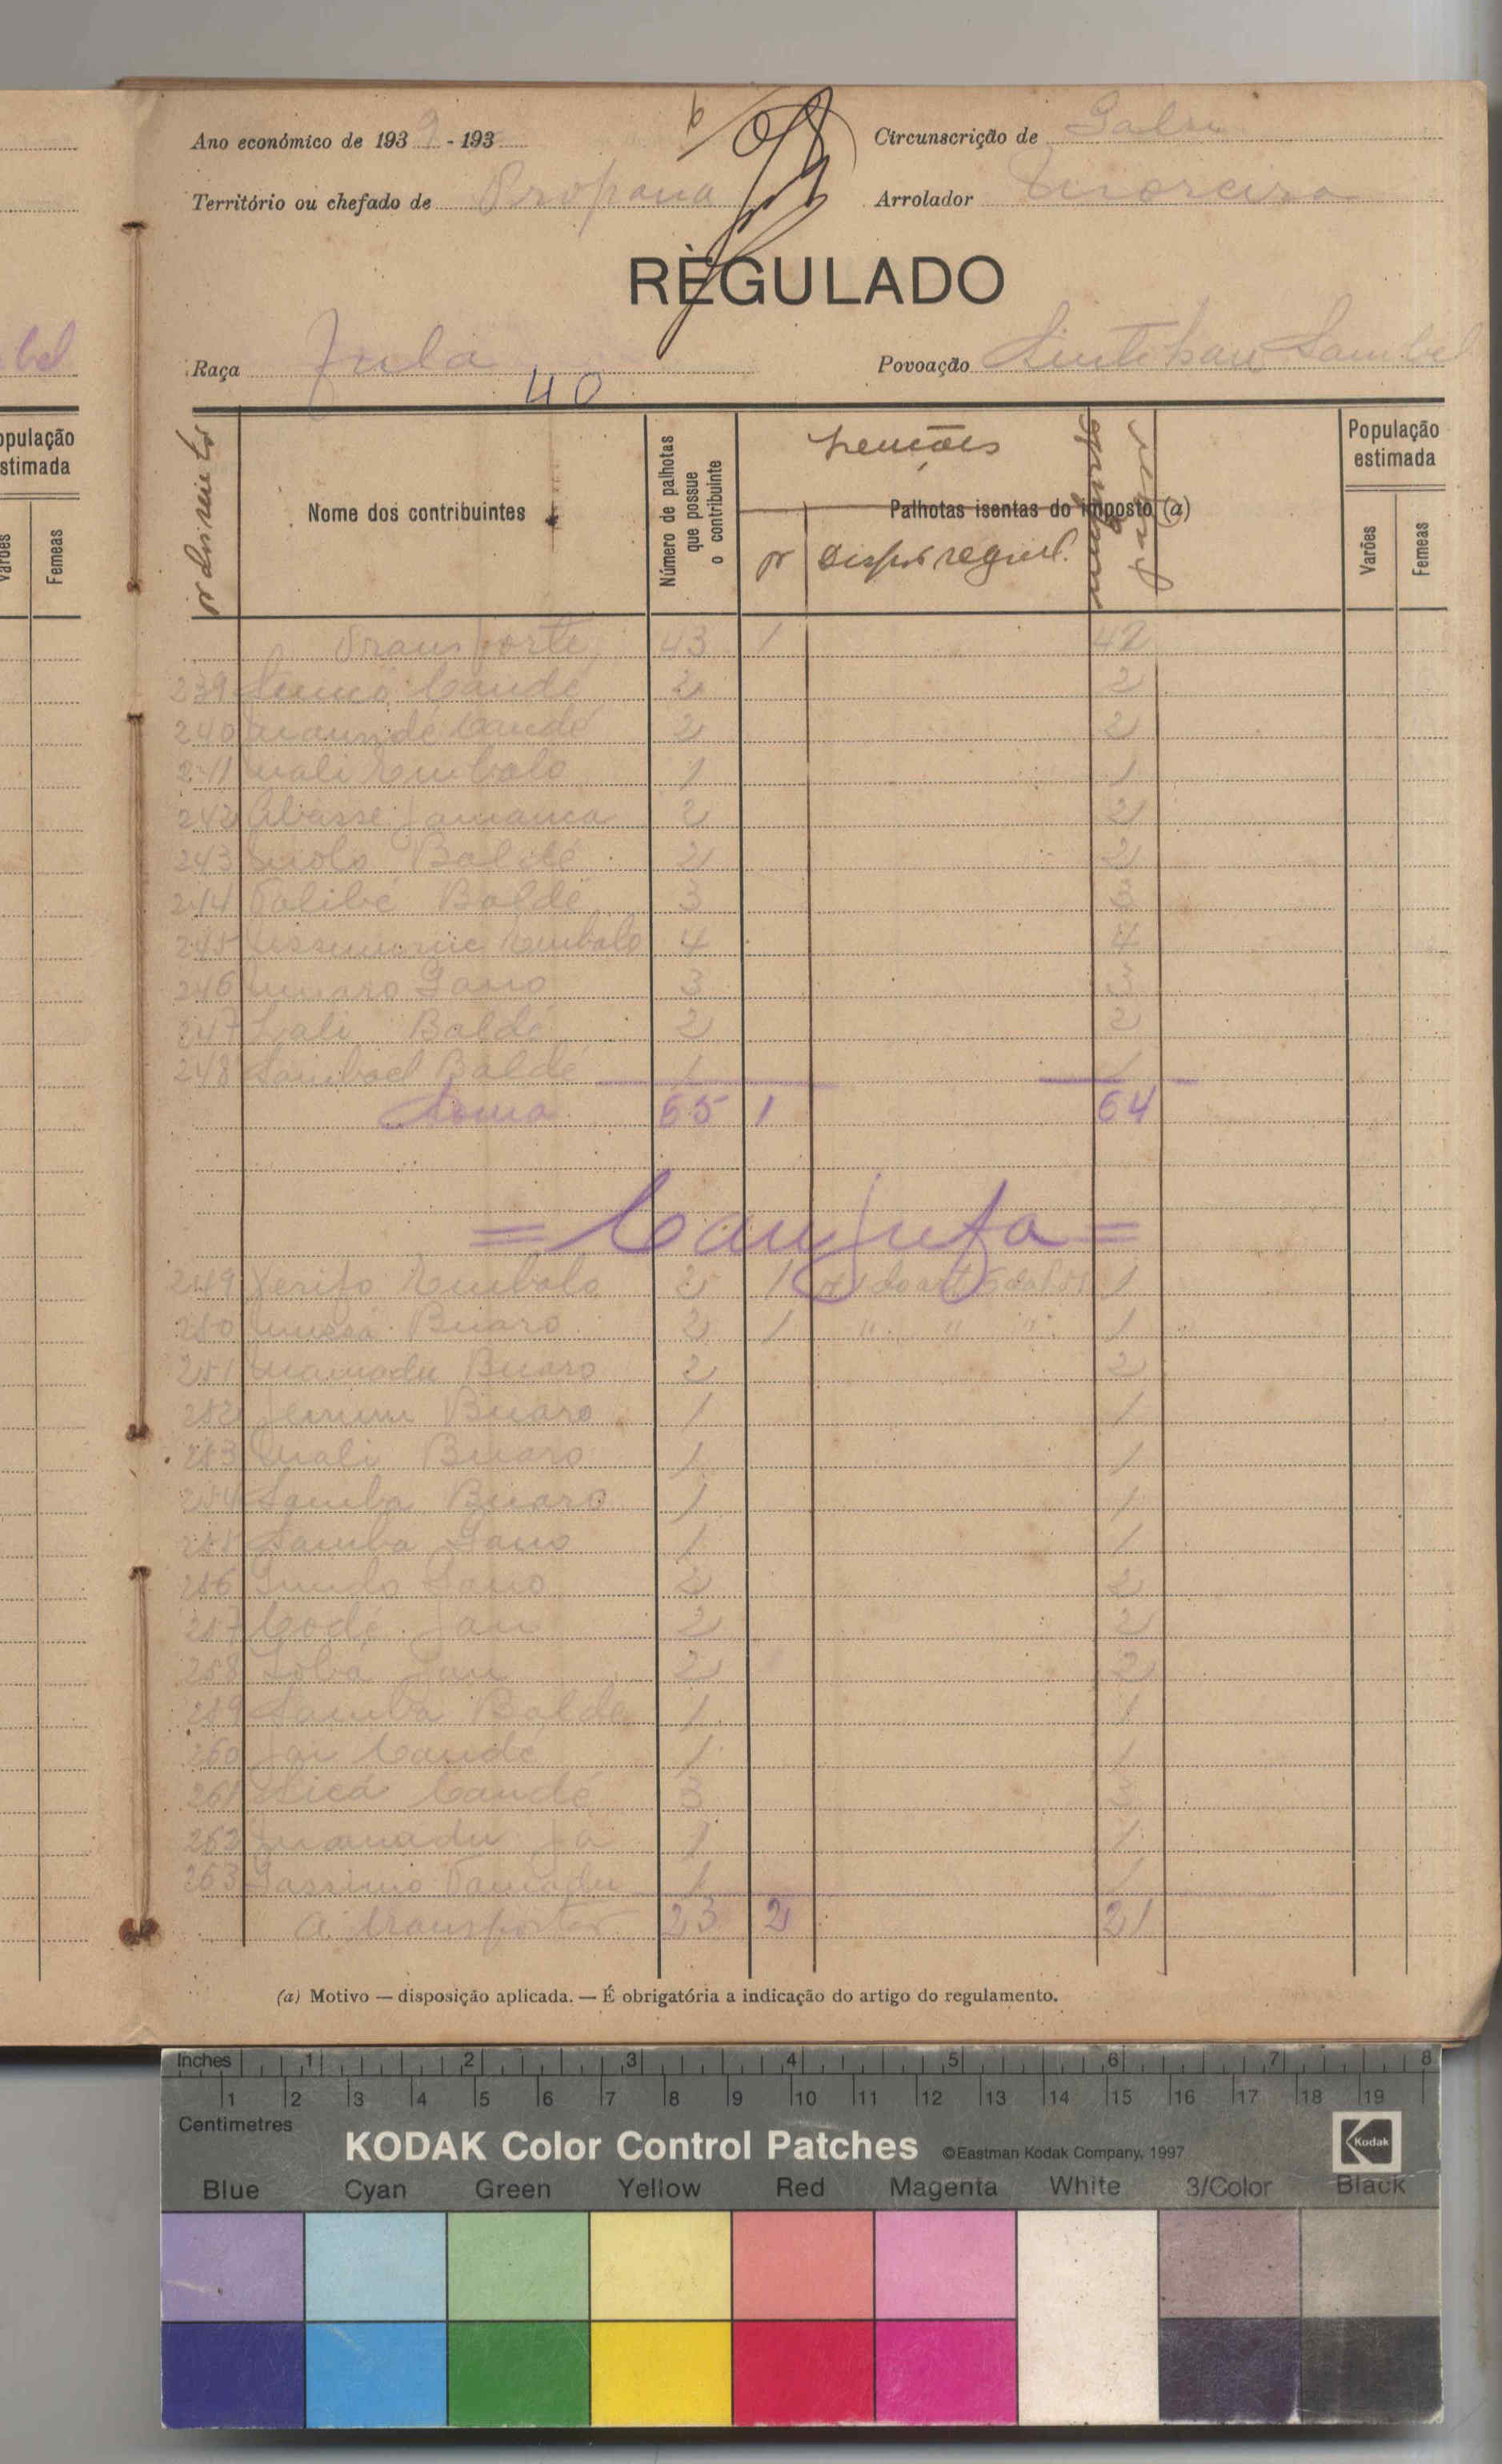 Ano económico de 1939 - 193
Circunscrição de
Território ou chefado de Propana
Arrolador Moreira
RÈGULADO
Raça Fula
40
Povoação Sintchan Sambel
bel
opulação
stimada
Varões
Femeas
Nome dos contribuintes
Número de palhotas
que possue
o contribuinte
Palhotas isentas do imposto (a)
População
estimada
Varões
Femeas
Transporte 43 1 42
239 Candé 2 2
240 Candé 2 2
241 Uali Embalo 1 1
242 Abasse Jamanca 2 2
243 Baldé 2 2
244 Talibé Baldé 3 3
245 Embalo 4 4
246 Umaro Gano 3 3
247 Lali Baldé 2 2
248 Sambael Baldé 1 1
Soma 65 1 64
= Canjufa =
249 Serifo Embalo 2 1 1
250 Mussá Buaro 2 1 " " " 1
251 Mamadu Buaro 2 2
252 Buaro 1 1
253 Uali Buaro 1 1
254 Samba Buaro 1 1
255 Samba Gano 1 1
256 Gano 2 2
257 Codé Jau 2 2
258 Jau 2 2
259 Samba Balde 1 1
260 Jai Candé 1 1
261 Sicá Candé 3 3
262 Mamadu Ja 1 1
263 1 1
A transportar 23 2 21
(a) Motivo — disposição aplicada. — É obrigatória a indicação do artigo do regulamento.
Inches 1 2 3 4 5 6 7 8
1 2 3 4 5 6 7 8 9 10 11 12 13 14 15 16 17 18 19
Centimetres
KODAK Color Control Patches ©Eastman Kodak Company, 1997 Kodak
Blue Cyan Green Yellow Red Magenta White 3/Color Black